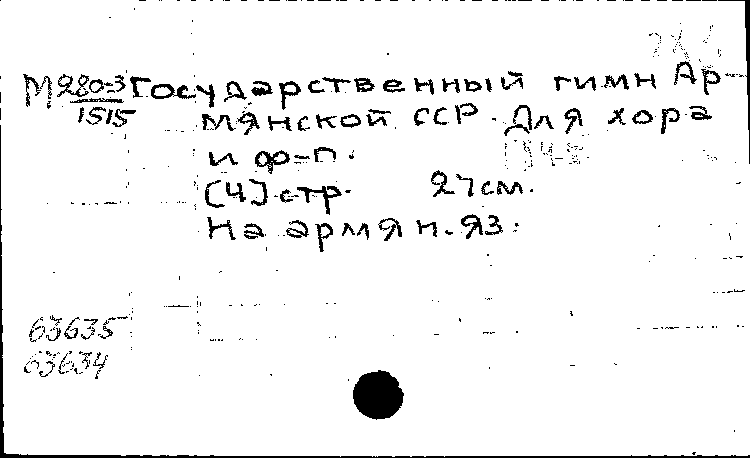 М 280-3 Государственный гимн Ар-
1515 мянской ССР. Для хора
и ф-п.
[4] стр. 27 см.
На армян. яз.
63635
63634